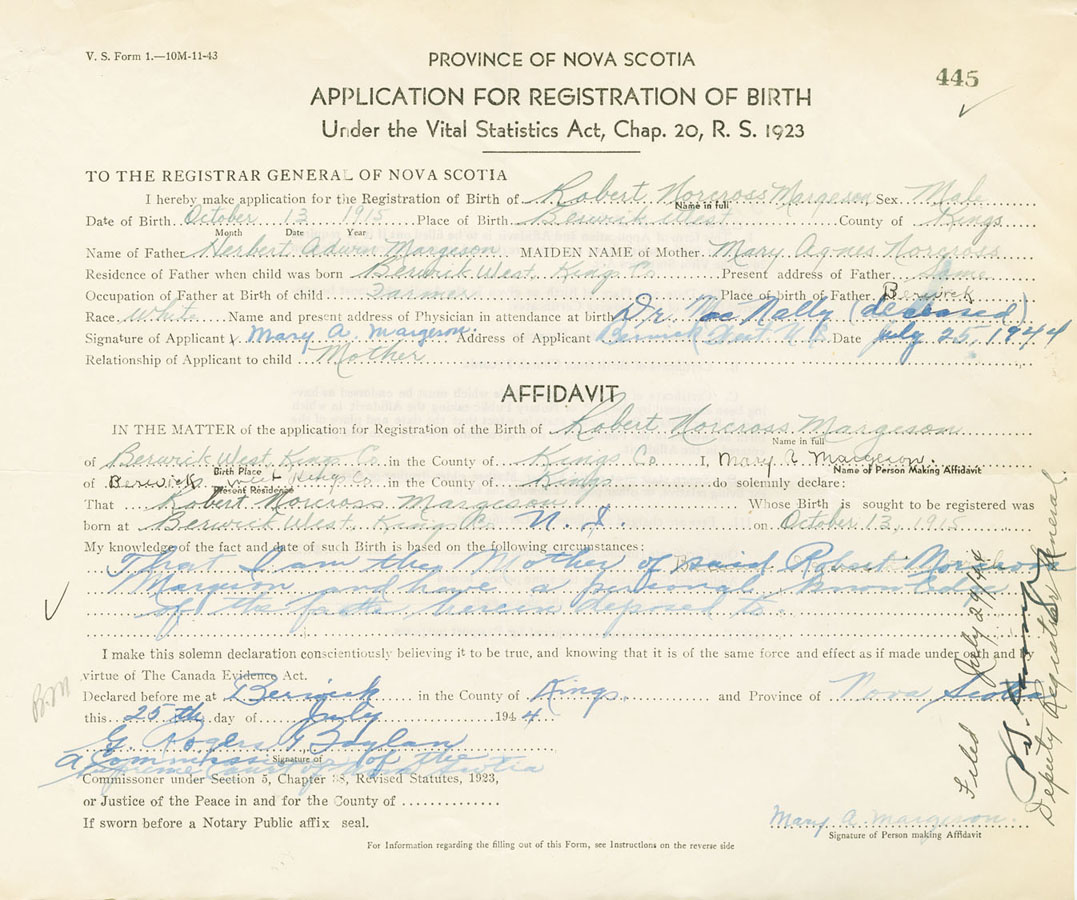 V. S. Form 1.—10M-11-43
PROVINCE OF NOVA SCOTIA
445
APPLICATION FOR REGISTRATION OF BIRTH
Under the Vital Statistics Act, Chap. 20, R. S. 1923
TO THE REGISTRAR GENERAL OF NOVA SCOTIA
I hereby make application for the Registration of Birth of Robert Norcross Margeson Sex Male
Name in full
Date of Birth October 13 1915 Place of Birth Berwick West County of Kings
Month Date Year
Name of Father Herbert Adwin Margeson MAIDEN NAME of Mother Mary Agnes Norcross
Residence of Father when child was born Berwick West Kings Co Present address of Father Same
Occupation of Father at Birth of child Farmer Place of birth of Father Berwick
Race White Name and present address of Physician in attendance at birth Dr. MacNally (deceased)
Signature of Applicant x Mary A. Margeson. Address of Applicant Berwick West N.S. Date July 25, 1944
Relationship of Applicant to child Mother
AFFIDAVIT
IN THE MATTER of the application for Registration of the Birth of Robert Norcross Margeson
Name in full
of Berwick West, Kings Co in the County of Kings Co I, Mary A Margeson.
Birth Place Name of Person Making Affidavit
of Berwick West Kings Co in the County of Kings do solemnly declare:
Present Residence
That Robert Norcross Margeson Whose Birth is sought to be registered was
born at Berwick West, Kings Co N.S. on October 13, 1915
My knowledge of the fact and date of such Birth is based on the following circumstances:
That I am the Mother of said Robert Norcross
Margeson and have a personal knowledge
of the facts herein deposed to.
I make this solemn declaration conscientiously believing it to be true, and knowing that it is of the same force and effect as if made under oath and by
virtue of The Canada Evidence Act.
B.M
Declared before me at Berwick in the County of Kings and Province of Nova Scotia
this 25th day of July 1944
G. Rogers Boylan
Signature of
A Commissioner of the
Supreme Court of Nova Scotia
Commissoner under Section 5, Chapter 38, Revised Statutes, 1923,
or Justice of the Peace in and for the County of
If sworn before a Notary Public affix seal.
Mary A. Margeson.
Signature of Person making Affidavit
For Information regarding the filling out of this Form, see Instructions on the reverse side
Filed July 29/44
Deputy Registrar General